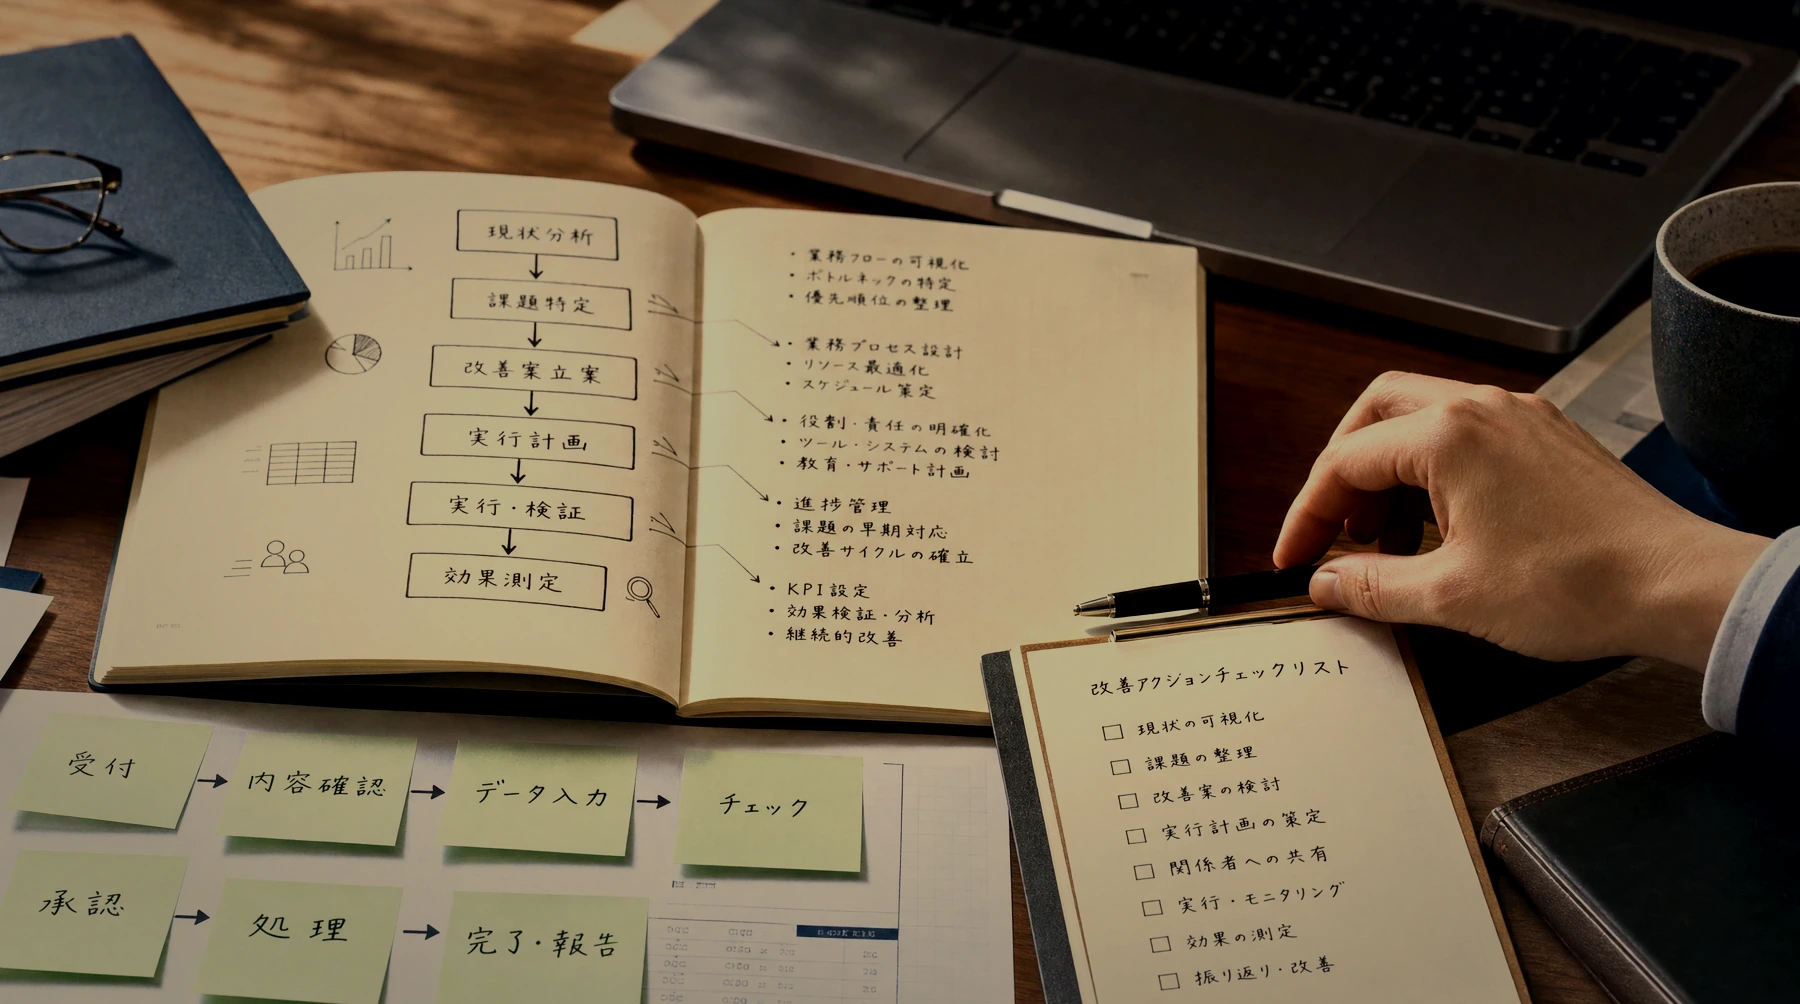 現状分析
課題特定
改善案立案
実行計画
実行・検証
効果測定
・業務フローの可視化
・ボトルネックの特定
・優先順位の整理
・業務プロセス設計
・リソース最適化
・スケジュール策定
・役割・責任の明確化
・ツール・システムの検討
・教育・サポート計画
・進捗管理
・課題の早期対応
・改善サイクルの確立
・KPI設定
・効果検証・分析
・継続的改善
受付
内容確認
データ入力
チェック
承認
処理
完了・報告
改善アクションチェックリスト
現状の可視化
課題の整理
改善案の検討
実行計画の策定
関係者への共有
実行・モニタリング
効果の測定
振り返り・改善